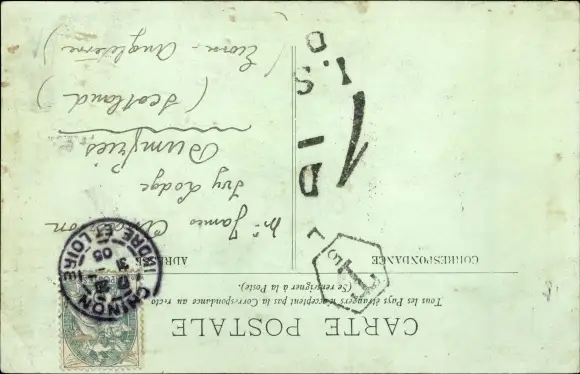 CARTE POSTALE
Tous les Pays étrangers n'acceptent pas la Correspondance au recto
(Se renseigner à la Poste).
CORRESPONDANCE
ADRESSE
CHINON
INDRE ET LOIRE
05
T
L
1D
I.S.D
Mr James
Ivy Lodge
Dumfries
(Scotland)
Angleterre)